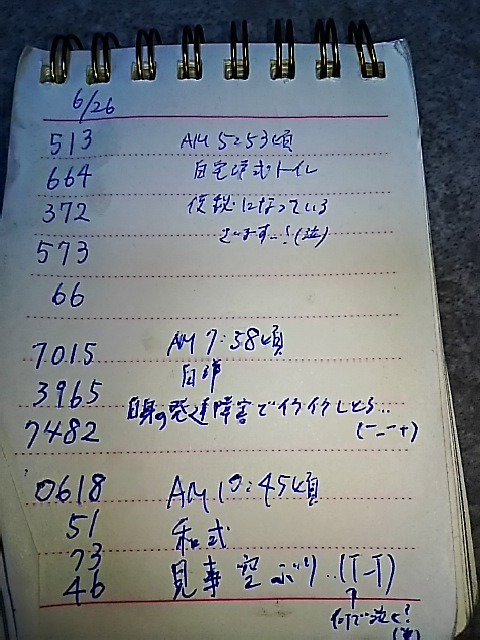 6/26
513 AM 5:53頃
664 自宅洋式トイレ
372 になっている
573 ざいます…!(泣)
66
7015 AM 7:38頃
3965 自
7482 自身の発達障害でイライラしとる…
(ー_ー+)
0618 AM 10:45頃
51 和式
73
46 見事空ぶり..(T-T)
↑
何で泣く?
(笑)